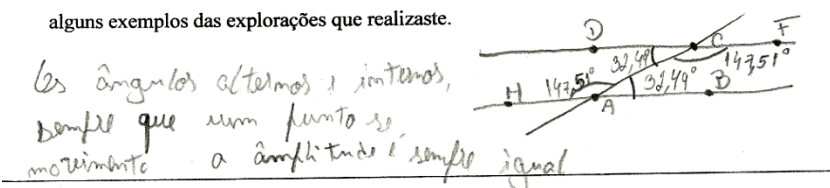 alguns exemplos das explorações que realizaste.
Os ângulos alternos i internos,
sempre que um punto se
movimenta a âmplitude é sempre igual
D C F
32,49° 147,51°
H 147,51° A 32,49° B